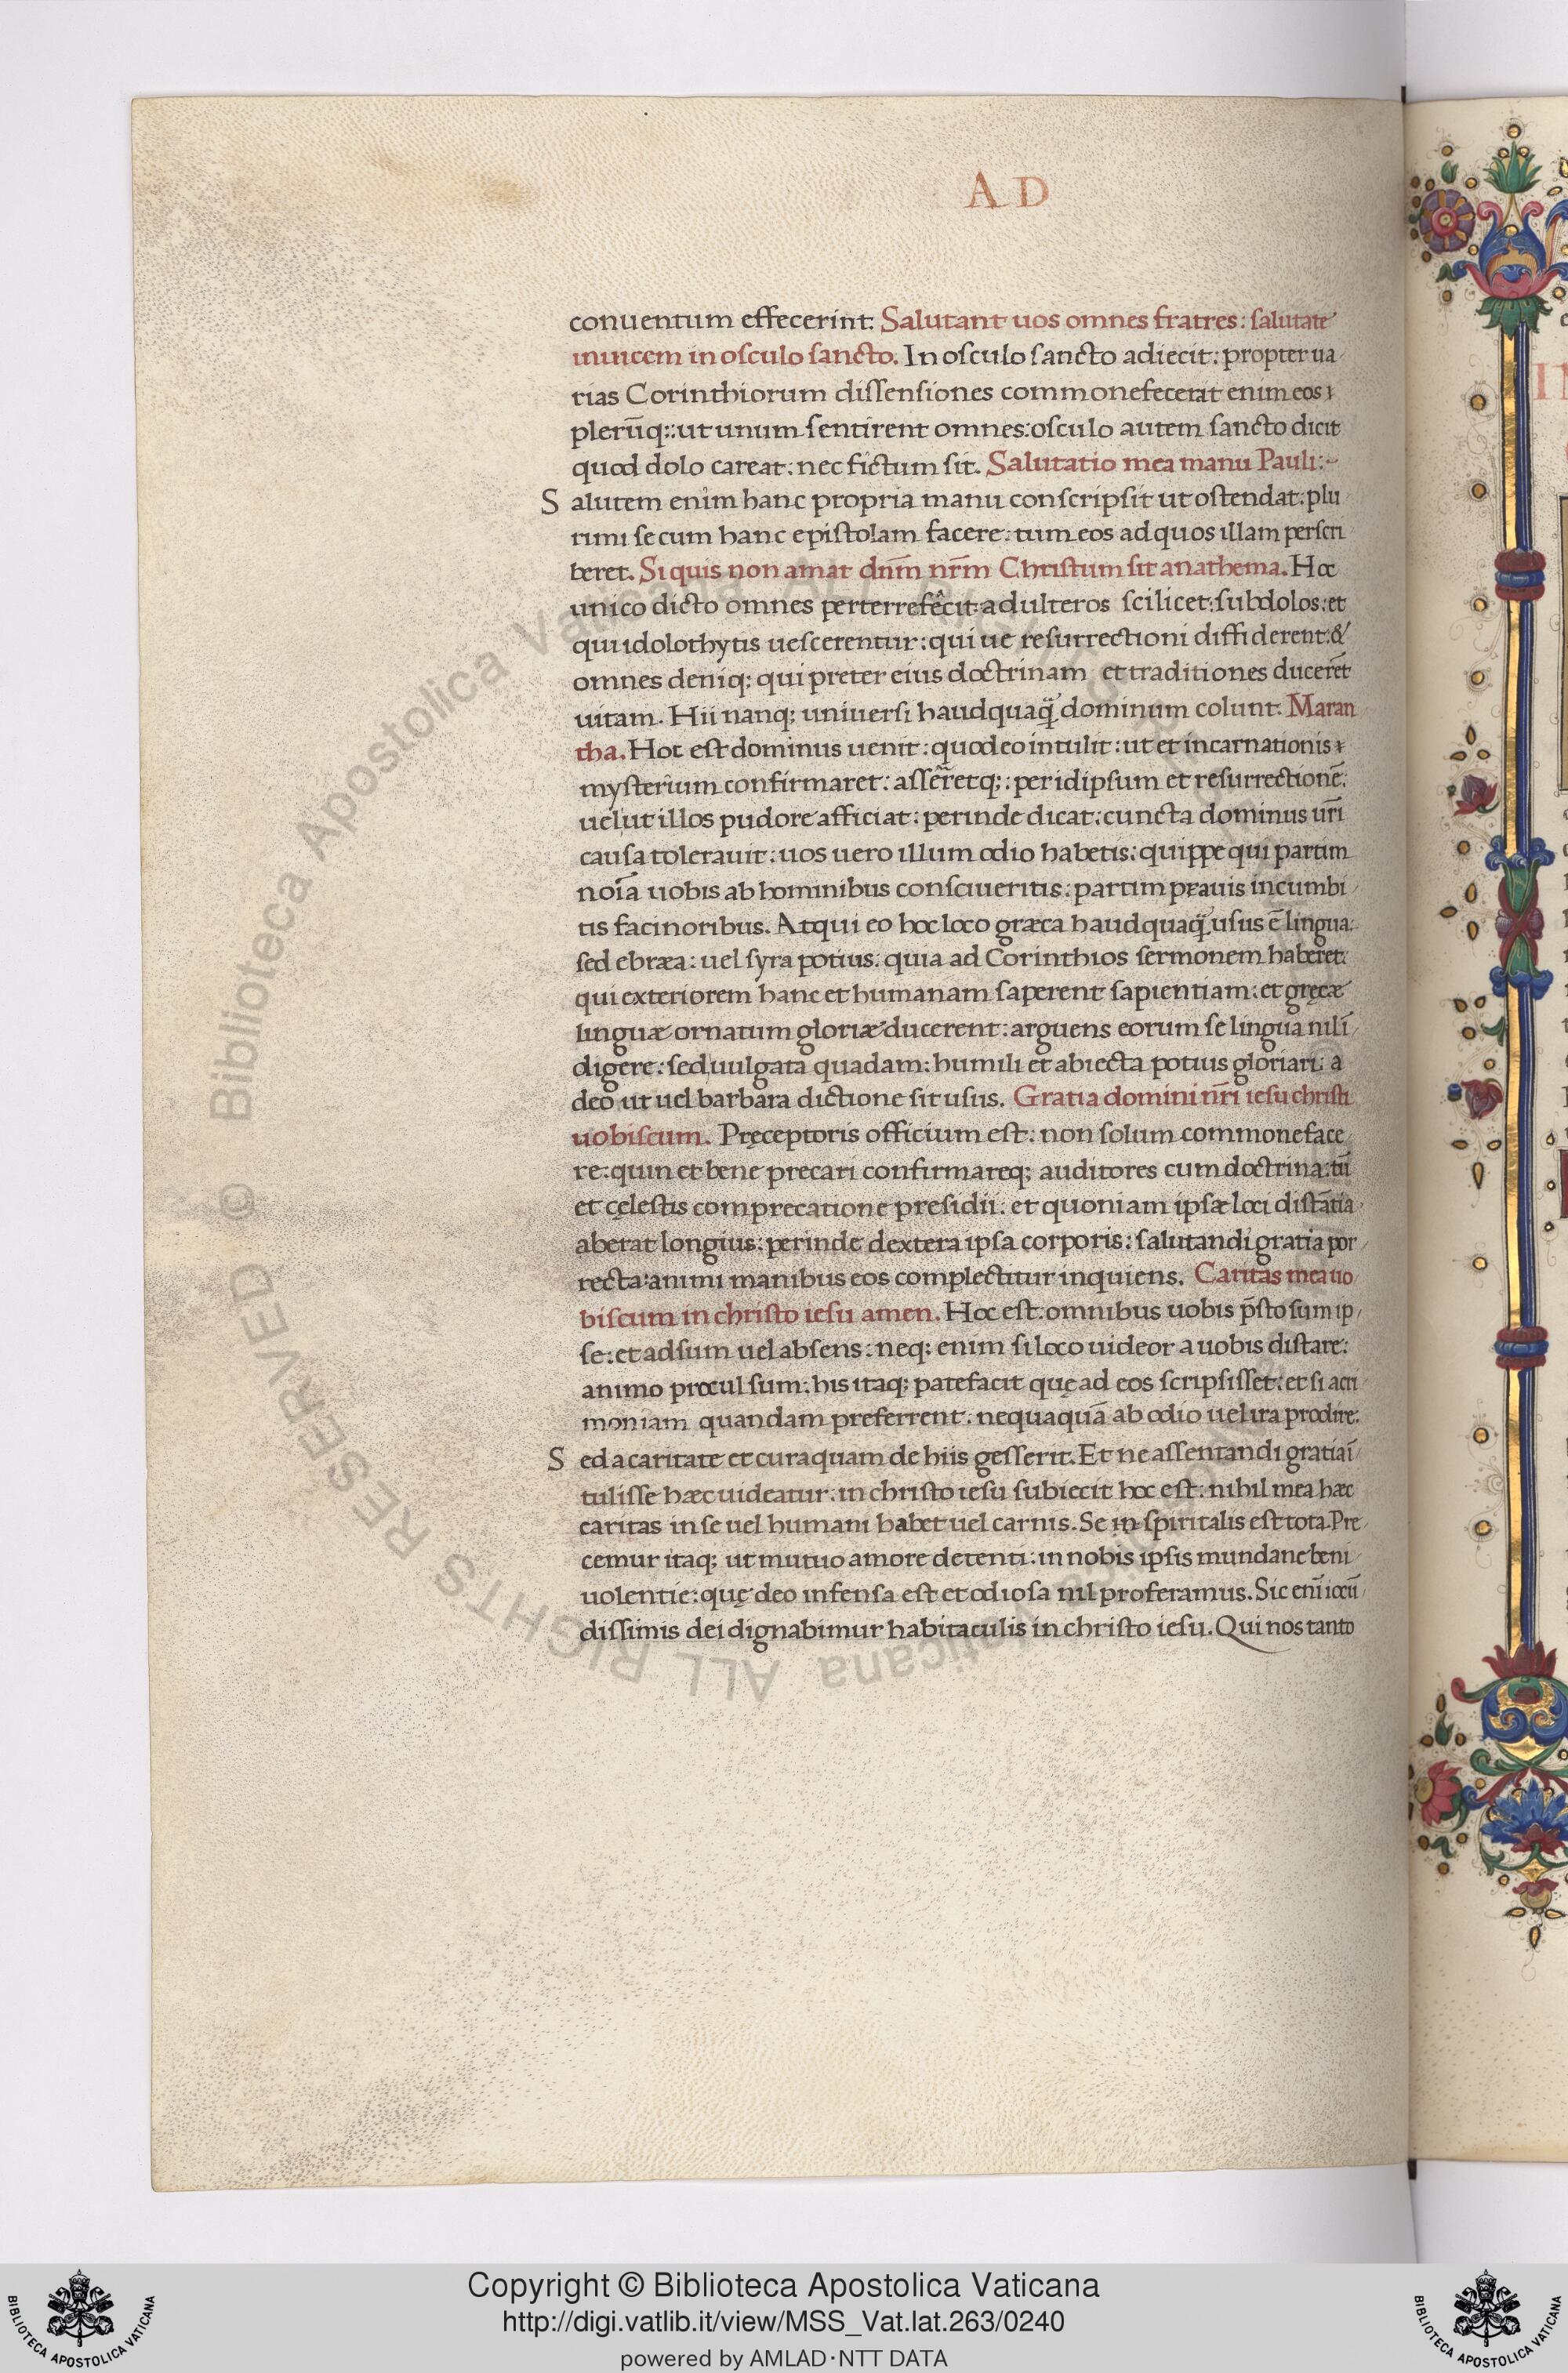 A D
conuentum effecerint. Salutant uos omnes fratres: salutate
inuicem in osculo sancto. In osculo sancto adiecit: propter ua
rias Corinthiorum dissensiones commonefecerat enim eos
plerūq;: ut unum sentirent omnes: osculo autem sancto dicit
quod dolo careat: nec fictum sit. Salutatio mea manu Pauli:~
S alutem enim hanc propria manu conscripsit ut ostendat: plu
rimi se cum hanc epistolam facere: tum eos ad quos illam perscri
beret. Si quis non amat dn̄m nr̄m Christum sit anathema. Hoc
unico dicto omnes perterrefecit: adulteros scilicet: subdolos: et
qui idolothytis uescerentur: qui ue resurrectioni diffiderent: &
omnes deniq; qui preter eius doctrinam et traditiones ducerēt
uitam. Hii nanq; uniuersi haudquaq̄ dominum colunt. Maran
tha. Hoc est dominus uenit: quod eo intulit: ut et incarnationis
mysterium confirmaret: asseretq;: per idipsum et resurrectionē:
uelut illos pudore afficiat: perinde dicat: cuncta dominus ur̄i
causa tolerauit: uos uero illum odio habetis: quippe qui partim
noīa uobis ab hominibus consciueritis: partim prauis incumbi
tis facinoribus. Atqui eo hoc loco græca haudquaq̄ usus ē lingua:
sed ebræa: uel syra potius: quia ad Corinthios sermonem haberet:
qui exteriorem hanc et humanam saperent sapientiam: et gręcæ
linguæ ornatum gloriæ ducerent: arguens eorum se lingua nil ī
digere: sed uulgata quadam: humili et abiecta potius gloriari: a
deo ut uel barbara dictione sit usus. Gratia domini nr̄i iesu christi
uobiscum. Pręceptoris officium est: non solum commoneface
re: quin et bene precari confirmareq; auditores cum doctrina: tū
et cęlestis comprecatione presidii: et quoniam ipsæ loci distātia
aberat longius: perinde dextera ipsa corporis: salutandi gratia por
recta: animi manibus eos complectitur inquiens. Caritas mea uo
biscum in christo iesu amen. Hoc est: omnibus uobis p̄sto sum ip
se: et adsum uel absens: neq; enim si loco uideor a uobis distare:
animo procul sum: his itaq; patefacit quę ad eos scripsisset: et si acri
moniam quandam preferrent: nequaquā ab odio uel ira prodire:
S ed a caritate et cura quam de hiis gesserit. Et ne assentandi gratia ī
tulisse hæc uideatur: in christo iesu subiecit hoc est: nihil mea hæc
caritas in se uel humani habet uel carnis. Se in spiritalis est tota. Pre
cemur itaq; ut mutuo amore detenti: in nobis ipsis mundane beni
uolentie: quę deo infensa est et odiosa nil proferamus. Sic enī iocū
dissimis dei dignabimur habitaculis in christo iesu. Qui nos tanto
© Biblioteca Apostolica Vaticana ALL RIGHTS RESERVED
Copyright © Biblioteca Apostolica Vaticana
http://digi.vatlib.it/view/MSS_Vat.lat.263/0240
powered by AMLAD·NTT DATA
BIBLIOTECA APOSTOLICA VATICANA
BIBLIOTECA APOSTOLICA VATICANA